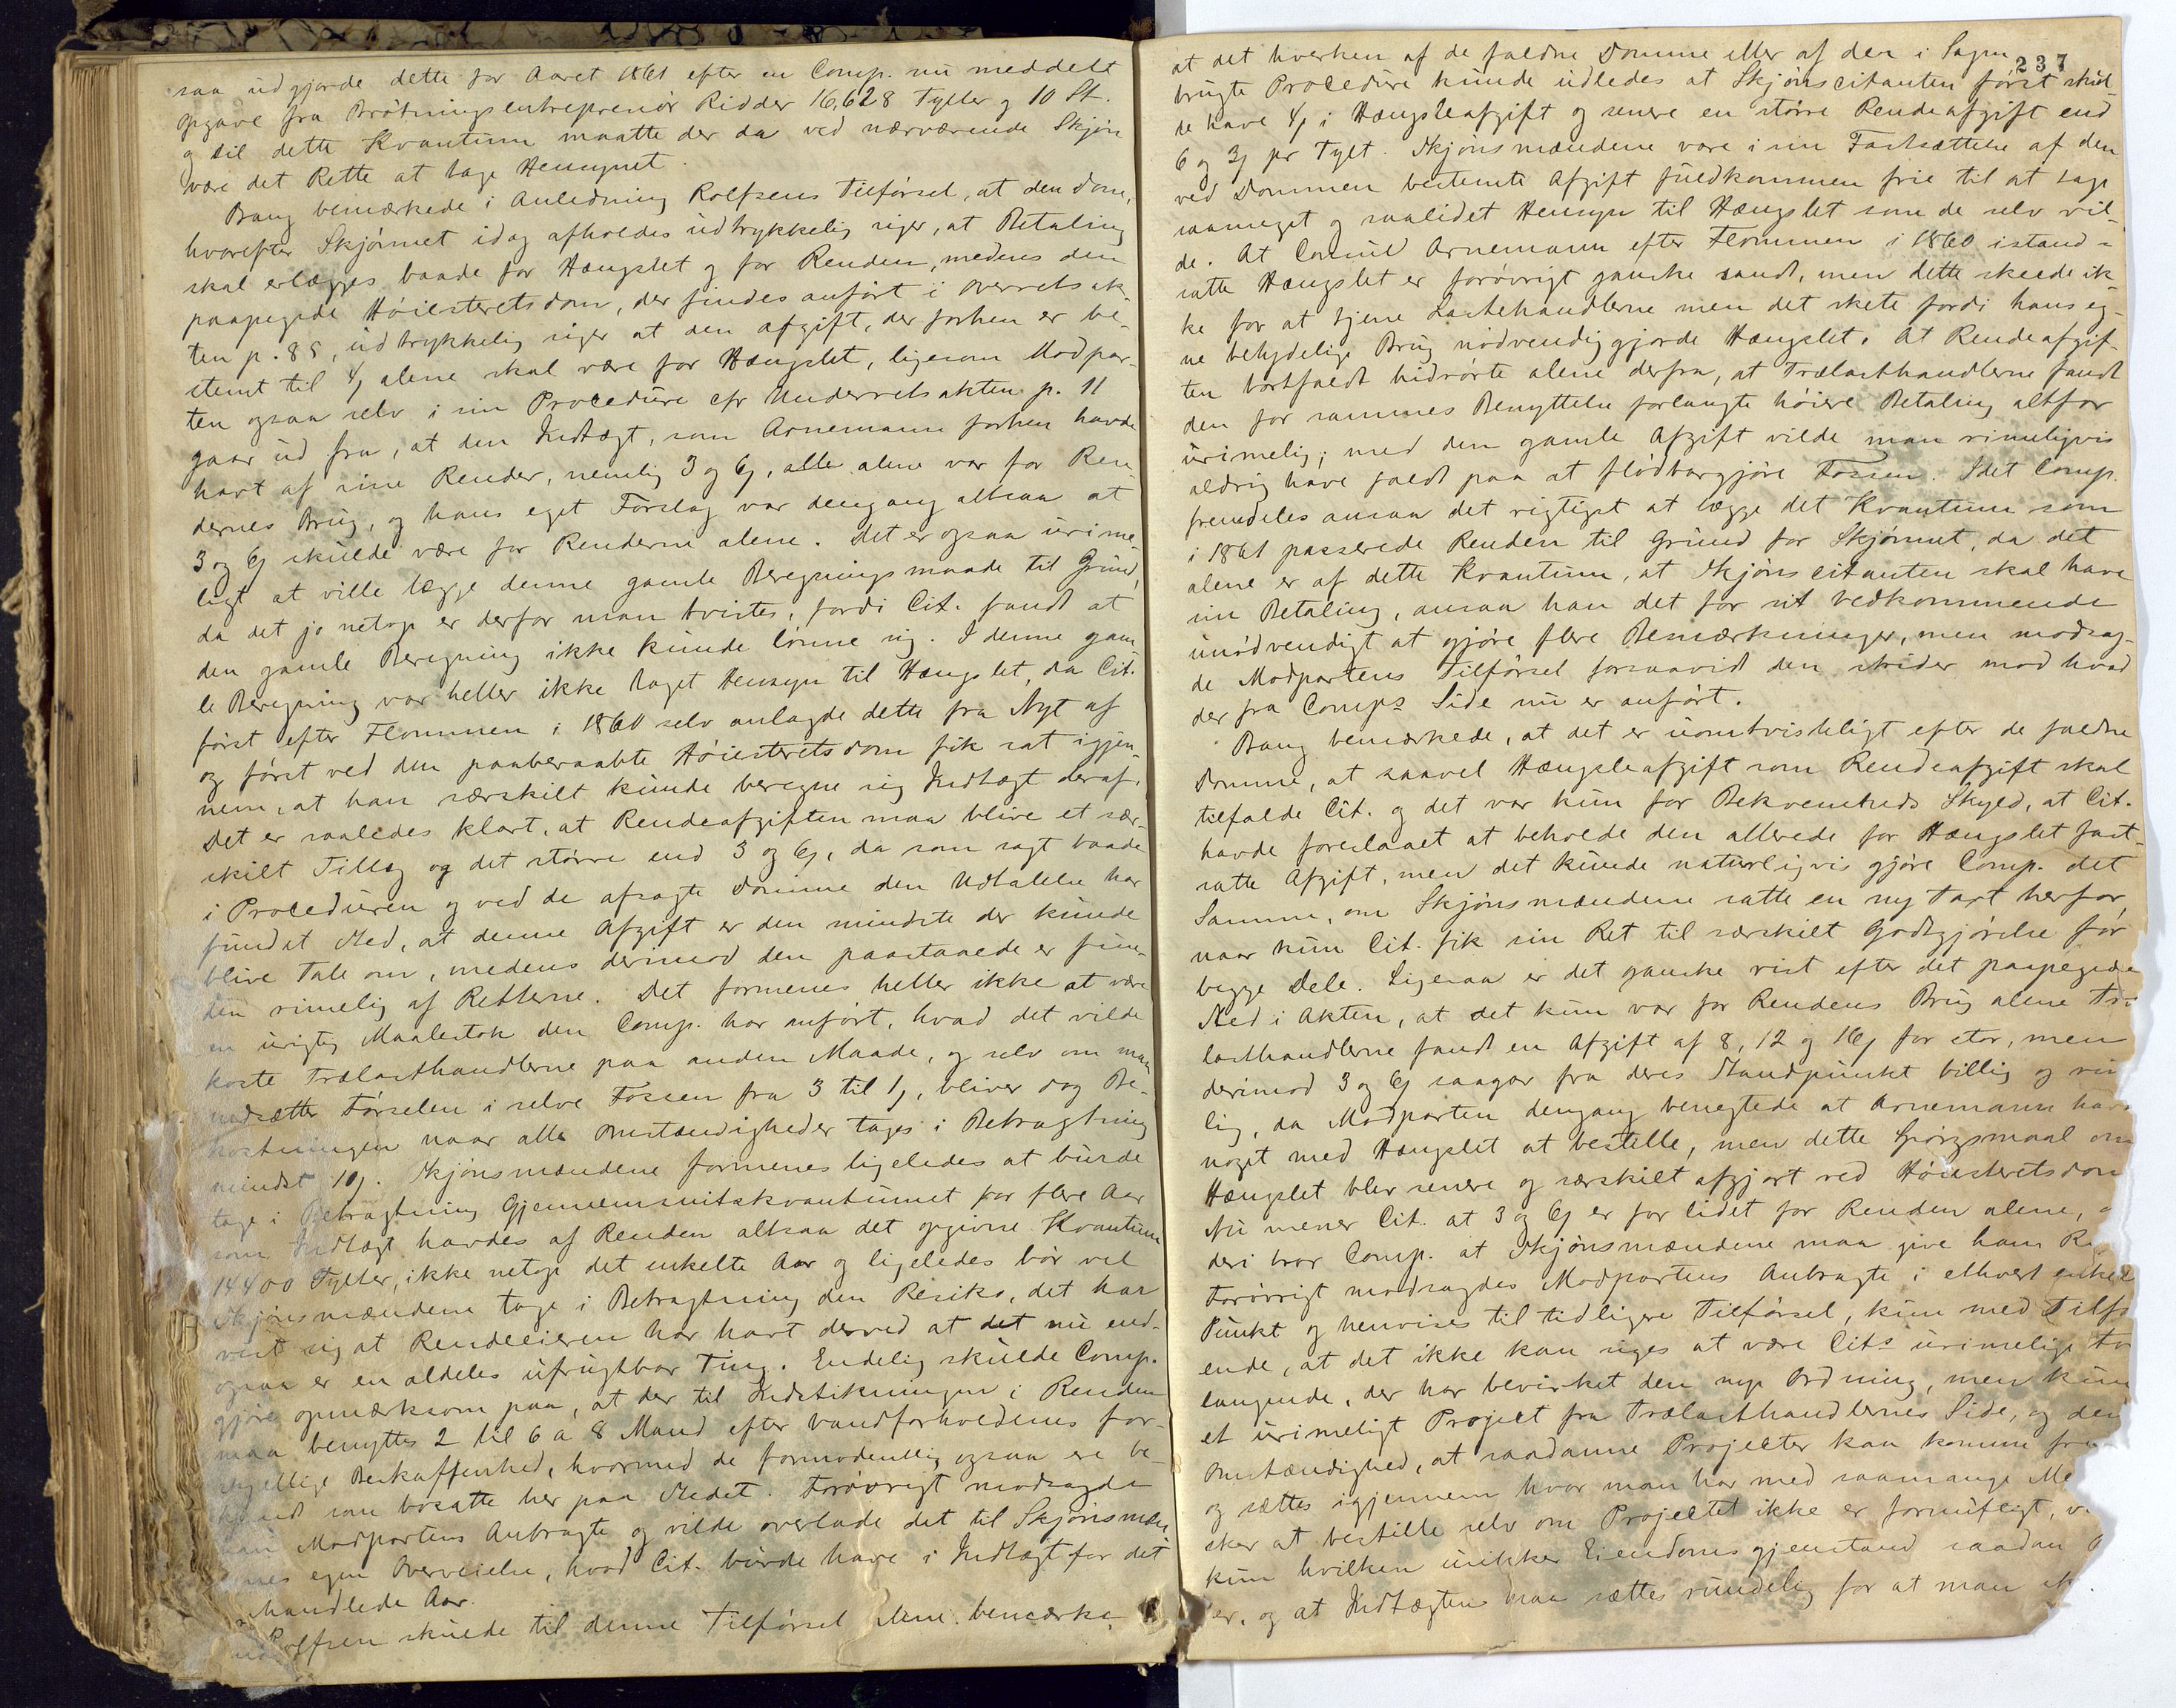 saa udgjorde dette for Aaret 1861 efter en Comp. nu meddelt
Opgave fra Brøtningsentreprenør Ridder 16,628 Tylter og 10 St.
og til dette Kvantum maatte der da ved nærværende Skjøn
være det Rette at tage Hensynet.
Bang bemærkede i Anledning Rolfsens Tilførsel, at den Dom,
hvorefter Skjønnet idag afholdes udtrykkelig siger, at Betaling
skal erlægges baade for Hængslet og for Renden, medens den
paapegede Høiesteretsdom, der findes anført i Overretsak-
ten p. 85, udtrykkelig siger at den Afgift, der forhen er be-
stemt til 4ẞ alene skal være for Hængslet, ligesom Modpar-
ten ogsaa selv i sin Procedure cfr Underretsakten p. 11
gaar ud fra, at den Indtægt, som Arnemann forhen havde
havt af sine Render, nemlig 3 og 6ẞ, alle alene var for Ren-
dernes Brug, og hans eget Forslag var dengang altsaa at
3 og 6ẞ skulde være for Renderne alene. Det er ogsaa urime-
ligt at ville lægge denne gamle Beregningsmaade til Grund,
da det jo netop er derfor man tvistes, fordi Cit. fandt at
den gamle Beregning ikke kunde lønne sig. I denne gam-
le Beregning var heller ikke taget Hensyn til Hængslet, da Cit.
først efter Flommen i 1860 selv anlagde dette fra Nyt af
og først ved den paaberaabte Høiesteretsdom fik sat igjen-
nem, at han særskilt kunde beregne sig Indtægt deraf.
Det er saaledes klart, at Rendeafgiften maa blive et sær-
skilt Tillæg og det større end 3 og 6ẞ, da som sagt baade
i Proceduren og ved de afsagte Domme den Udtalelse har
fundet Sted, at denne Afgift er den mindste der kunde
blive Tale om, medens derimod den paastaaede er fun-
den rimelig af Retterne. Det formenes heller ikke at være
en urigtig Maalestok den Comp. har anført, hvad det vilde
koste Trælasthandlerne paa anden Maade, og selv om man
nedsætter Førselen i selve Fossen fra 3 til 1ẞ, bliver dog Be-
kostningen naar alle Omstændigheder tages i Betragtning
mindst 10ẞ. Skjønsmændene formenes ligeledes at burde
tage i Betragtning Gjennemsnitskvantummet for flere Aar
som Indtægt havdes af Renden altsaa det opgivne Kvantum
14400 Tylter, ikke netop det enkelte Aar og ligeledes bør vel
Skjønsmændene tage i Betragtning den Risiko, det har
vist sig at Rendeeieren har havt derved at det nu end-
ogsaa er en aldeles ufrugtbar Ting. Endelig skulde Comp.
gjøre opmærksom paa, at der til Indstikningen i Renden
maa benyttes 2 til 6 a 8 Mand efter Vandforholdenes for-
skjellige Beskaffenhed, hvormed de formodentlig ogsaa ere be-
kjendt som bosatte her paa Stedet. Forøvrigt modsagde
han Modpartens Anbragte og vilde overlade det til Skjønsmæn-
denes egen Overveielse, hvad Cit. burde have i Indtægt for det
handlede Aar.
Rolfsen skulde til denne Tilførsel alene bemærke
237
at det hverken af de faldne Domme eller af den i Sagen
brugte Procedure kunde udledes at Skjønscitanten først skul-
de have 4ẞ i Hængsleafgift og senere en større Rendeafgift end
6 og 3ẞ pr Tylt. Skjønsmændene vare i sin Fastsættelse af den
ved Dommen bestemte Afgift fuldkommen frie til at tage
saameget og saalidet Hensyn til Hængslet som de selv vil-
de. At Consul Arnemann efter Flommen i 1860 istand-
satte Hængslet er forøvrigt ganske sandt, men dette skeede ik-
ke for at tjene Lastehandlerne men det skete fordi hans eg-
ne betydelige Brug nødvendiggjorde Hængslet. At Rendeafgif-
ten bortfaldt hidrørte alene derfra, at Trælasthandlerne fandt
den for sammes Benyttelse forlangte høiere Betaling altfor
urimelig; med den gamle Afgift vilde man rimeligvis
aldrig have faldt paa at flødbargjøre Fossen. Idet Comp.
fremdeles ansaa det rigtigst at lægge det Kvantum som
i 1861 passerede Renden til Grund for Skjønnet, da det
alene er af dette Kvantum, at Skjønscitanten skal have
sin Betaling, ansaa han det for sit Vedkommende
unødvendigt at gjøre flere Bemærkninger, men modsag-
de Modpartens Tilførsel forsaavidt den strider mod hvad
der fra Comps Side nu er anført.
Bang bemærkede, at det er uomtvisteligt efter de faldne
Domme, at saavel Hængsleafgift som Rendeafgift skal
tilfalde Cit. og det var kun for Bekvemheds Skyld, at Cit.
havde foreslaaet at beholde den allerede for Hængslet fast-
satte Afgift, men det kunde naturligvis gjøre Comp. det
Samme, om Skjønsmændene satte en ny Taxt herfor,
naar kun Cit. fik sin Ret til særskilt Godtgjørelse for
begge Dele. Ligesaa er det ganske vist efter det paapegede
Sted i Akten, at det kun var for Rendens Brug alene Træ-
lasthandlerne fandt en Afgift af 8, 12 og 16ẞ for stor, men
derimod 3 og 6ẞ saagar fra deres Standpunkt billig og
lig, da Modparten dengang benegtede at Arnemann havde
noget med Hængslet at bestille, men dette Spørgsmaal om
Hængslet blev senere og særskilt afgjort ved Høiesteretsdom
Nu mener Cit. at 3 og 6ẞ er for lidet for Renden alene,
deri tror Comp. at Skjønsmændene maa give ham
Forøvrigt modsagdes Modpartens Anbragte i ethvert enkelt
Punkt og henvises til tidligere Tilførsel, kun med Tilfø-
ende, at det ikke kan siges at være Cits urimelige
langende, der har bevirket den nye Ordning, men kun
et urimeligt Project fra Trælasthandlernes Side, og den
Omstændighed, at saadanne Projecter kan komme
og sættes igjennem hvor man har med saamange
sker at bestille selv om Projectet ikke er fornuftigt,
kun hvilken usikker Eiendomsgjenstand saadan
er, og at Indtægten maa sættes rundelig for at man